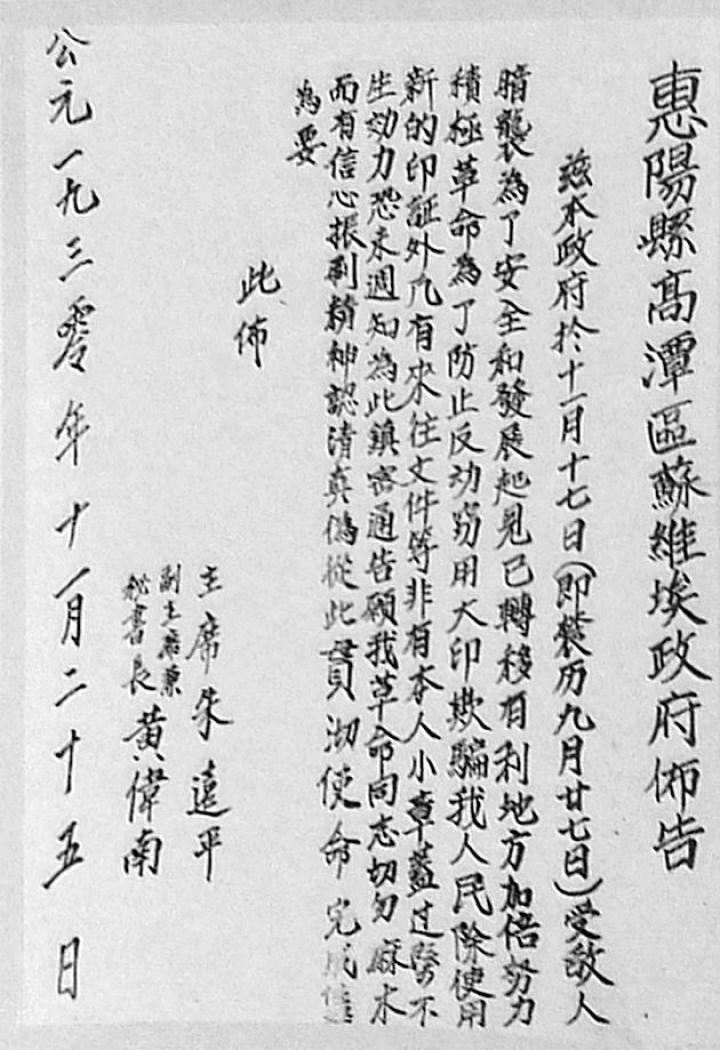 惠陽縣高潭區蘇維埃政府佈告
茲本政府於十一月十七日(即農历九月廿七日)受敌人
暗襲為了安全和發展起見已轉移有利地方加倍努力
積極革命為了防止反动窃用大印欺騙我人民除使用
新的印証外凡有來往文件等非有本人小章蓋过槩不
生効力恐未週知為此鎮密通告願我革命同志切勿麻木
而有信心振刷精神認清真偽從此貫沏使命完成
為要
此佈
主席朱遠平
副主席兼
秘書長黃偉南
公元一九三零年十一月二十五日